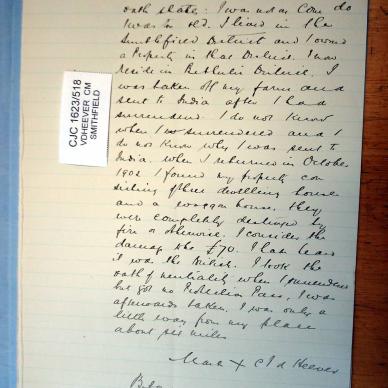 oath states: I was not on Com do
I was too old. I lived in the
Smithfield District and I owned
a property in that District. I now
reside in Bethulie District. I
was taken off my farm and
sent to India after I had
surrendered. I do not know
when I surrendered and I
do not know why I was sent to
India. When I returned in October
1902 I found my property con
sisting of three dwelling house
and a waggon house, they
were completely destroyed by
fire or otherwise. I consider the
damage was £70. I can swear
it was the British. I took the
oath of neutrality when I surrendered
but got no Protection Pass, I was
afterwards taken. I was only a
little away from my place
about six miles
Mark X C J d Heever
CJC 1623/518
VDHEEVER CM
SMITHFIELD